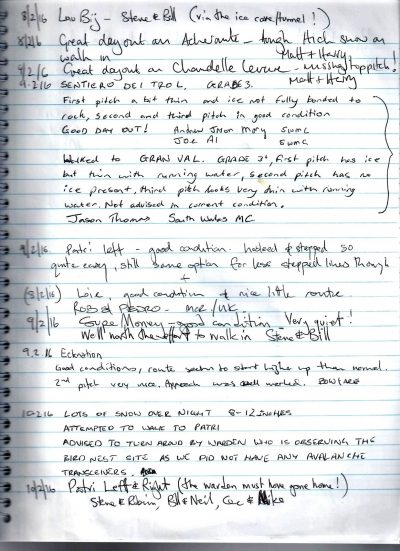 8/2/16 Lau Bij - Steve & Bill (via the ice cave/tunnel!)
8/2/16 Great day out on Acheronte - tough thick snow on
walk in Matt + Harry
9/2/16 Great day out on Chandelle Levure - missing top pitch!
Matt + Harry
9.2.16 SENTIERO DEI TROL, GRADE 3.
First pitch a bit thin and ice not fully bonded to
rock, second and third pitch in good condition
GOOD DAY OUT! Andrew Jason Mory SWMC
JOE Al SWMC
Walked to GRAN VAL. GRADE 3+, first pitch has ice
but thin with running water, second pitch has no
ice present, third pitch looks very thin with running
water. Not advised in current condition.
Jason Thomas South Wales MC
9/2/16 Patri left - good condition. Hooked & stepped so
quite easy, still some option for less stepped lines though
+
(8/2/16) Loie, good condition & nice little route
ROB & PEDRO - MCR/UK
9/2/16 Sure Money - good condition - Very quiet!
Well worth the effort to walk in Steve & Bill
9.2.16 Ecknation
Good conditions, route seems to start higher up than normal.
2nd pitch very nice. Approach was well marked.
10.2.16 LOTS OF SNOW OVER NIGHT 8-12 INCHES
ATTEMPTED TO WALK TO PATRI
ADVISED TO TURN AROUND BY WARDEN WHO IS OBSERVING THE
BIRD NEST SITE AS WE DID NOT HAVE ANY AVALANCHE
TRANSCEIVERS.
10/2/16 Patri Left & Right (the warden must have gone home!)
Steve & Robin, Bill & Neil, Cec & Mike